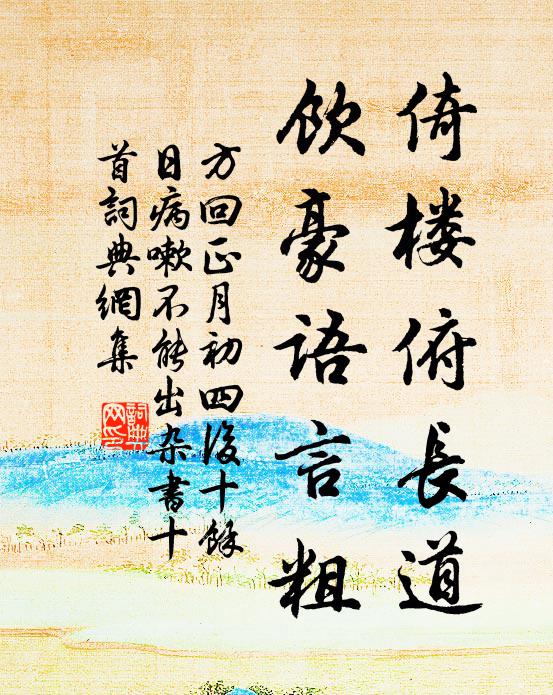 倚楼俯長道
飲豪語言粗
方回正月初四後十餘
日病嗽不能出杂書十
首詞典網集
詞典
网印